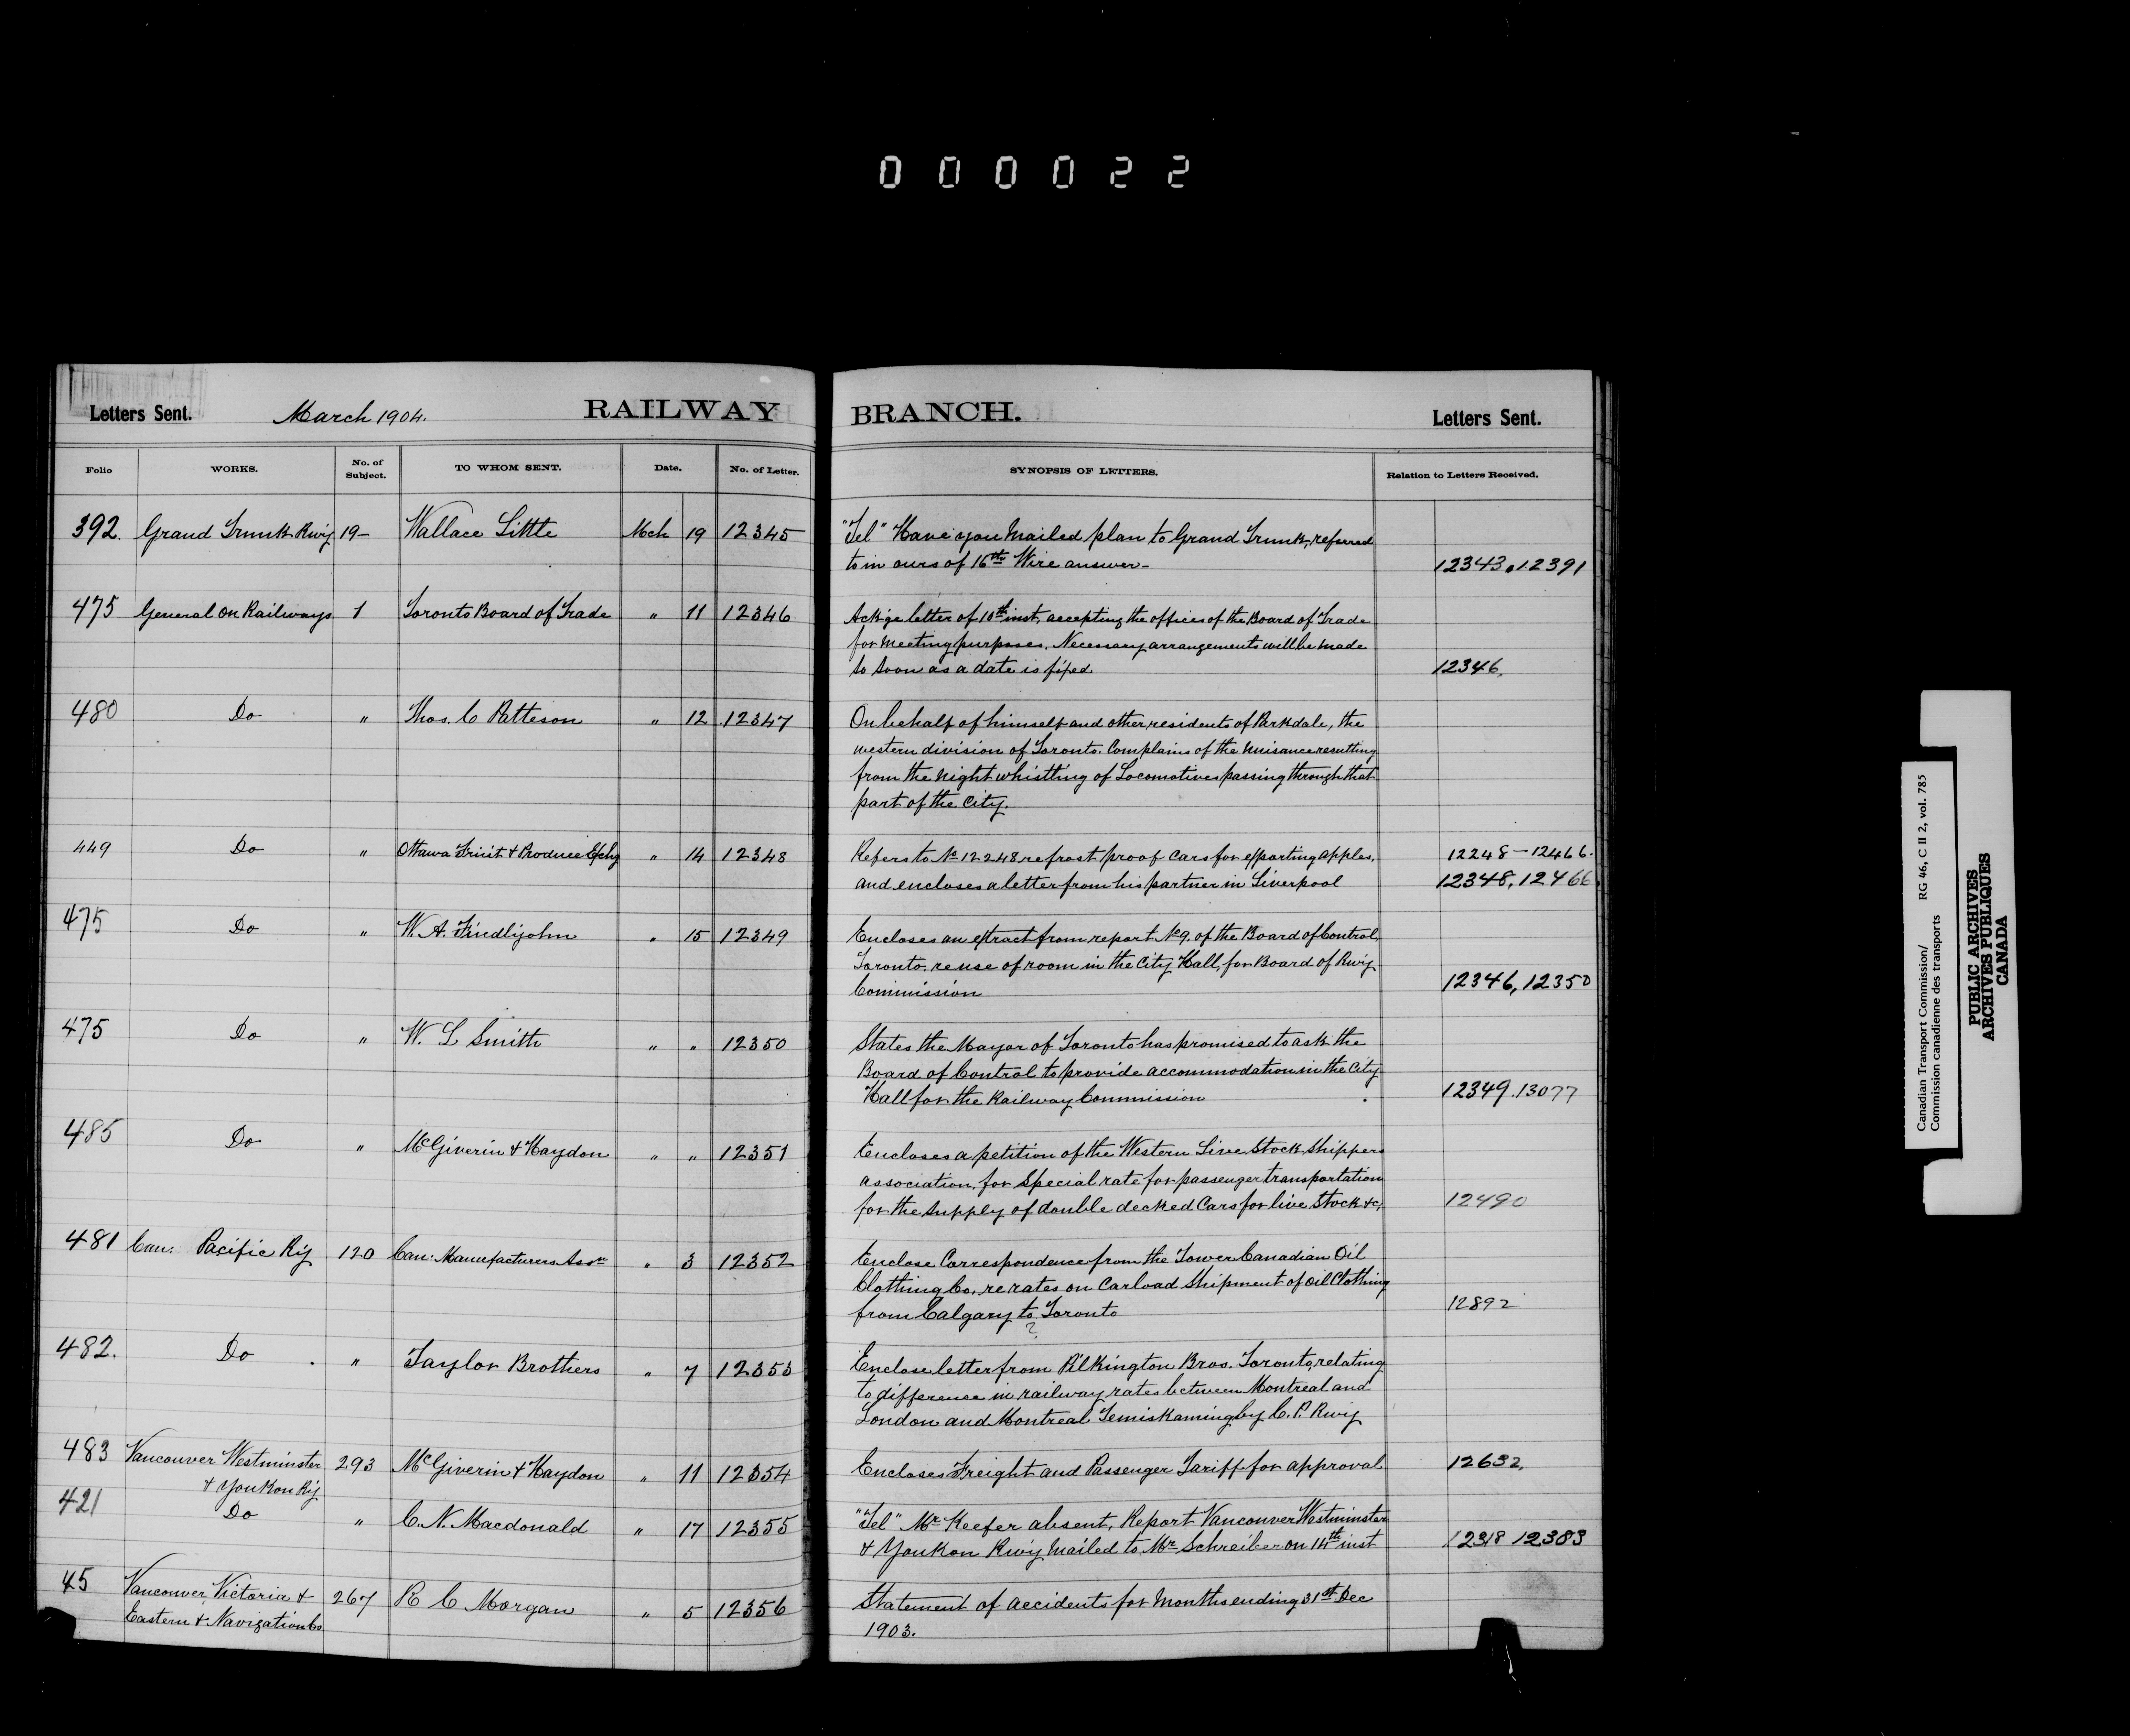 000022
Letters Sent. March 1904. RAILWAY BRANCH. Letters Sent.
Folio WORKS. No. of Subject. TO WHOM SENT. Date. No. of Letter. SYNOPSIS OF LETTERS. Relation to Letters Received.
392. Grand Trunk Rwy 19- Wallace Little Mch 19 12345 "Tel" Have you Mailed plan to Grand Trunk, referred
to in ours of 16th Wire answer- 12343.12391
475 General on Railways 1 Toronto Board of Trade " 11 12346 Ack'ge letter of 10th inst, accepting the offices of the Board of Trade
for meeting purposes. Necessary arrangements will be made
so soon as a date is fixed 12346.
480 Do " Thos. C Patteson " 12 12347 On behalf of himself and other, residents of Parkdale, the
western division of Toronto. Complains of the nuisance resulting
from the night whistling of Locomotives passing through that
part of the City.
449 Do " Ottawa Fruit & Produce Exchg " 14 12348 Refers to No 12248 re frost proof Cars for exporting apples, 12248-12466.
and encloses a letter from his partner in Liverpool 12348, 12466.
475 Do " W. A. " 15 12349 Encloses an extract from report No 9. of the Board of Control,
Toronto, re use of room in the City Hall, for Board of Rwy
Commission 12346, 12350
475 Do " W. L Smith " " 12350 States the Mayor of Toronto has promised to ask the
Board of Control to provide accommodation in the City
Hall for the Railway Commission 12349.13077
485 Do " McGiverin & Haydon " " 12351 Encloses a petition of the Western Live Stock Shippers
association, for Special rate for passenger transportation
for the supply of double decked Cars for live Stock &c, 12490
481 Can: Pacific Ry 120 Can: Manufacturers Assn " 3 12352 Enclose Correspondence from the Tower Canadian Oil
Clothing Co., re rates on Carload Shipment of oil Clothing
from Calgary to Toronto 12892
?
482. Do " Taylor Brothers " 7 12353 Enclose letter from Pilkington Bros. Toronto, relating
to difference in railway rates between Montreal and
London and Montreal Temiskaming by C. P. Rwy
483 Vancouver Westminster 293 McGiverin & Haydon " 11 12354 Encloses Freight and Passenger Tariff for approval 12632.
& Youkon Ry
421 Do " C. N. Macdonald " 17 12355 "Tel" Mr Keefer absent, Report Vancouver Westminster
& Youkon Rwy Mailed to Mr Schreiber on 14th inst 12318 12383
45 Vancouver, Victoria & 267 R C Morgan " 5 12356 Statement of accidents for Months ending 31st Dec
Eastern & Navigation Co. 1903.
Canadian Transport Commission/ RG 46, C II 2, vol. 785
Commission canadienne des transports
PUBLIC ARCHIVES
ARCHIVES PUBLIQUES
CANADA